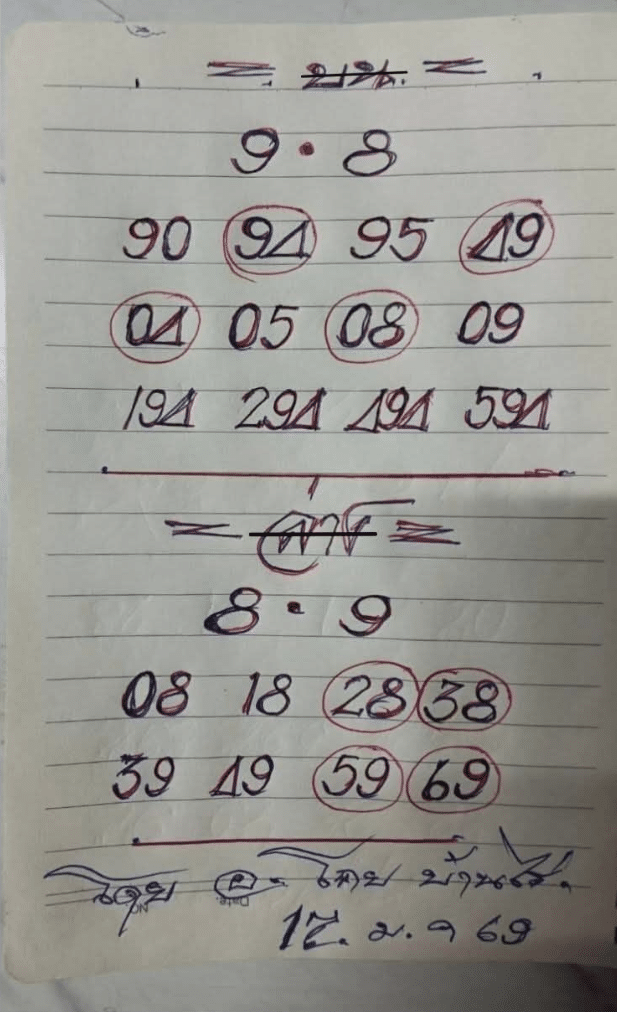 = บน. =
9 · 8
90 94 95 49
04 05 08 09
194 294 494 594
= ล่าง =
8 · 9
08 18 28 38
39 49 59 69
โดย อ. โทย บ้านไร่.
17. ม. ค 69